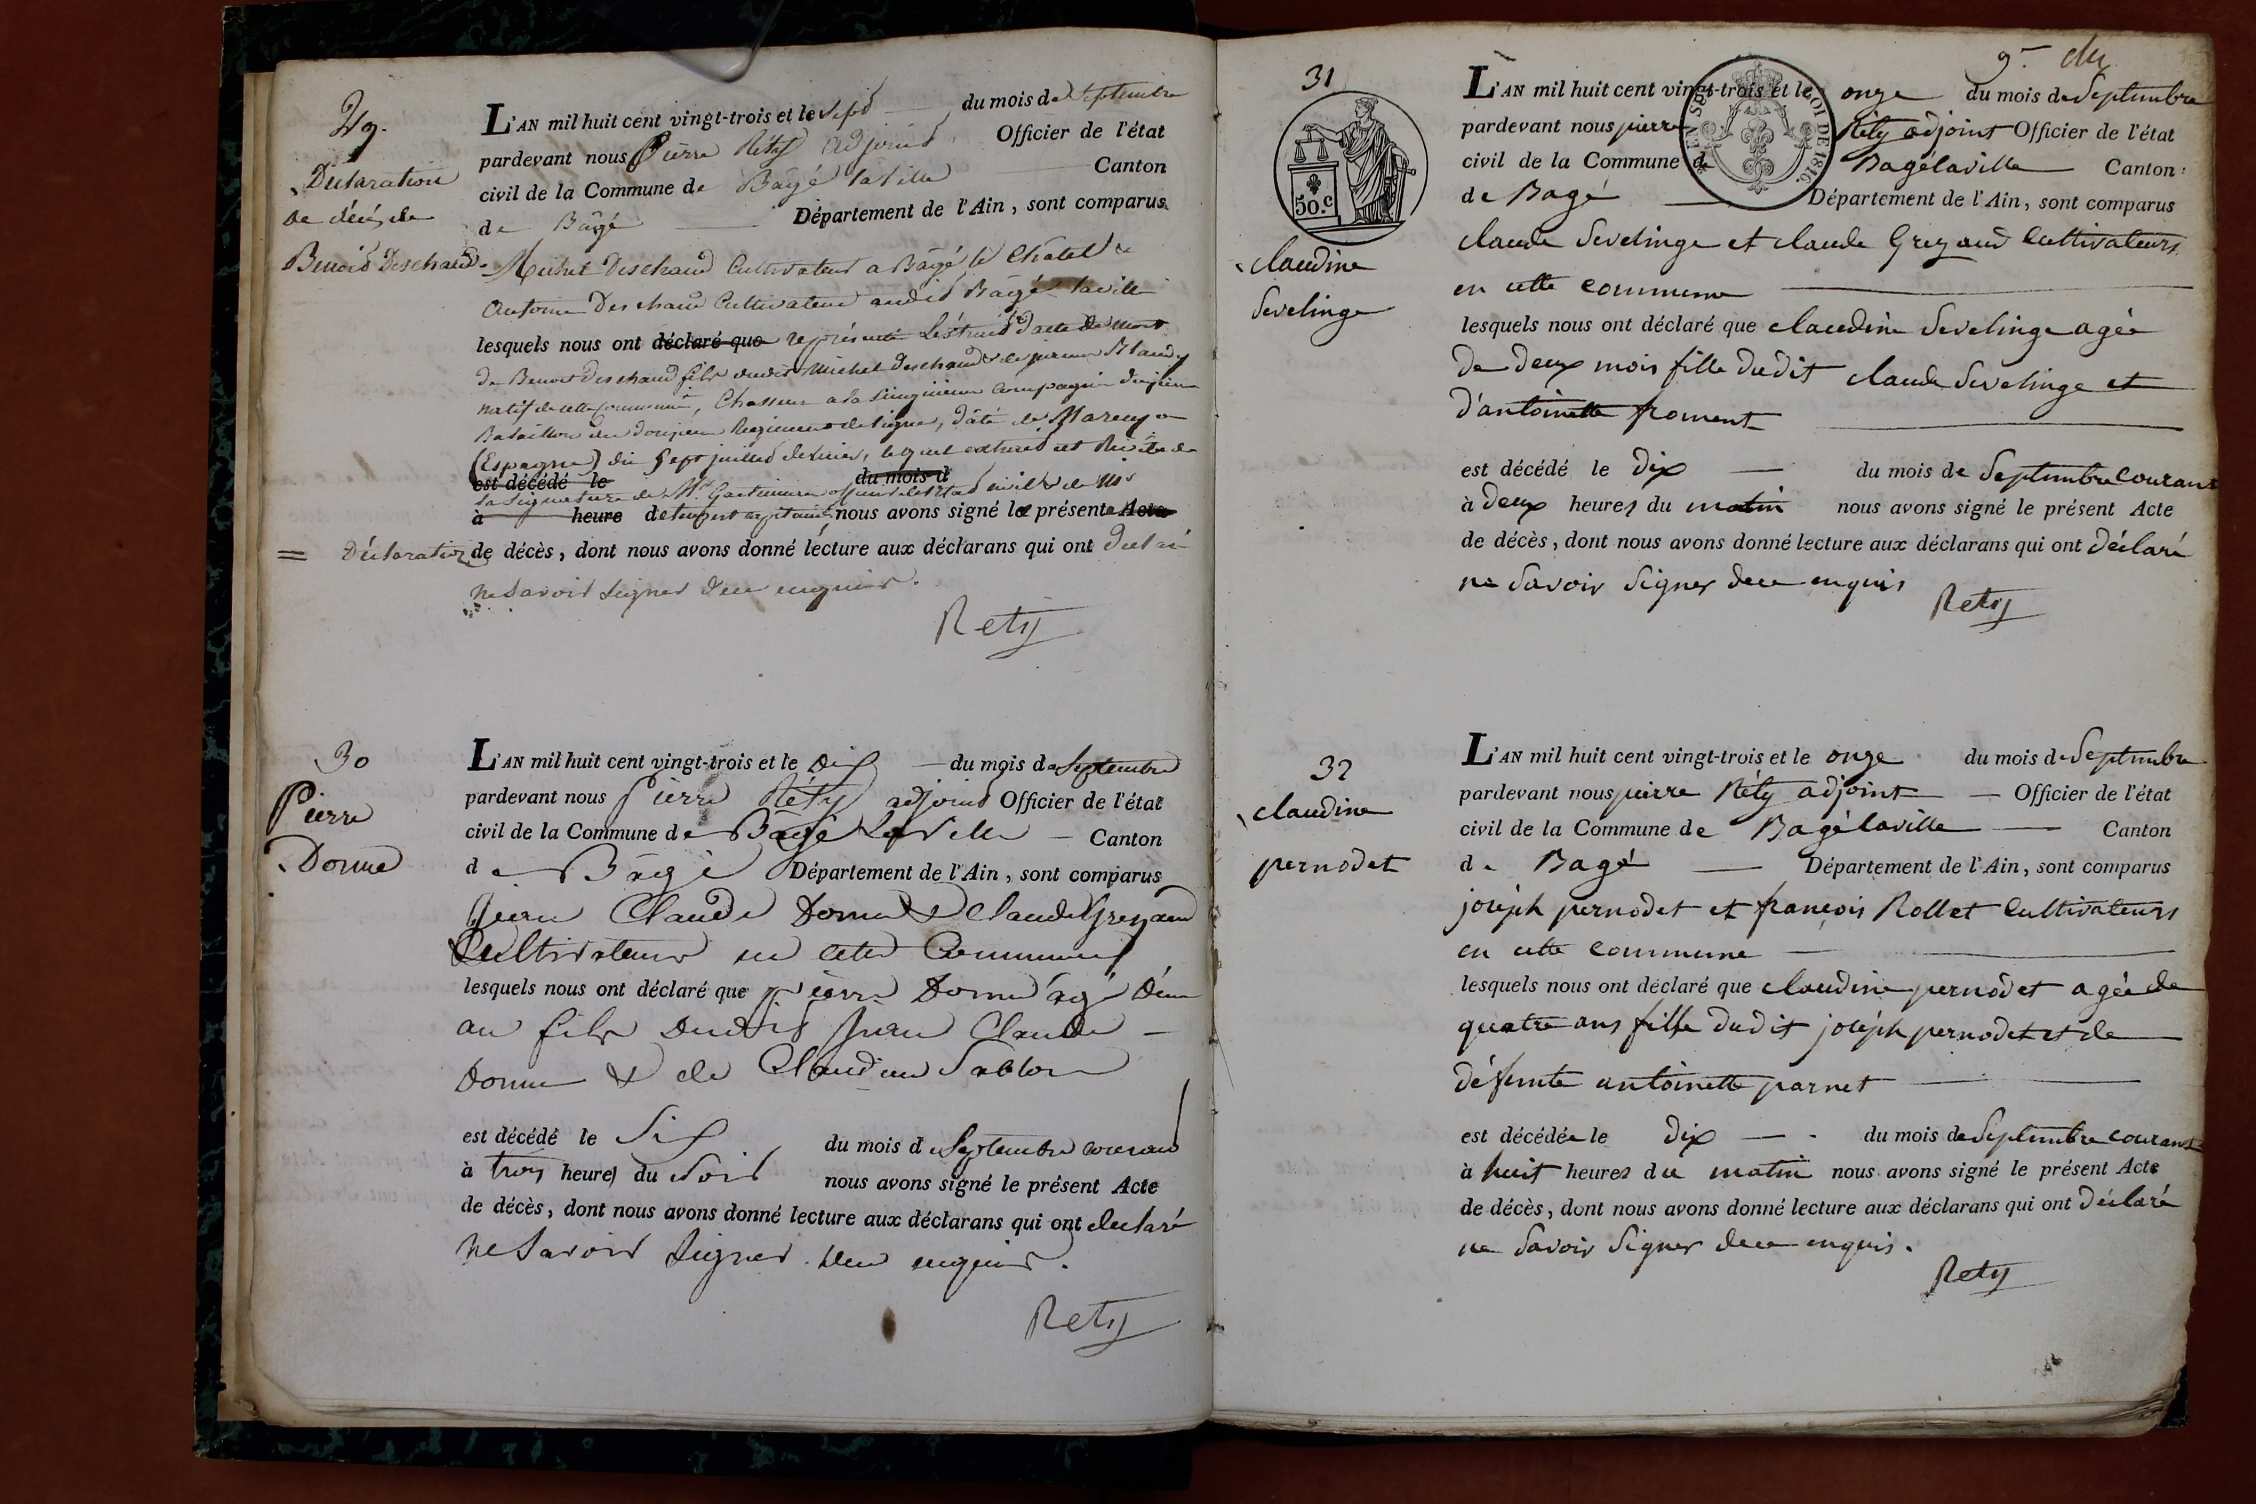 29.
Déclaration
de décès de
Benoit Deschaud.
L'AN mil huit cent vingt-trois et le sept du mois de Septembre
pardevant nous Pierre Réty adjoint Officier de l'état
civil de la Commune de Bâgé la ville Canton
de Bâgé Département de l'Ain, sont comparus
Michel Deschaud Cultivateur a Bâgé le Chatel &
Antoine Deschaud Cultivateur audit Bâgé la ville
lesquels nous ont déclaré que représenté l'extrait d'acte de mort
de Benoit Deschaud fils dudit Michel Deschaud & de
natif de cette commune, Chasseur a la Cinquieme Compagnie
Bataillon du Regiment de ligne, daté de
(Espagne) du sept juillet dernier, lequel extrait est
est décédé le du mois d
la signature de Mr
à heure de nous avons signé la présente Acte
= Déclaration de décès, dont nous avons donné lecture aux déclarans qui ont déclaré
ne savoir signer de ce enquis.
Rety
30
Pierre
Donne
L'AN mil huit cent vingt-trois et le dix du mois de Septembre
pardevant nous Pierre Réty adjoint Officier de l'état
civil de la Commune de Bâgé la Ville Canton
de Bâgé Département de l'Ain, sont comparus
Jean Claude Donne & Claude Greyaud
Cultivateurs en cette Commune
lesquels nous ont déclaré que Pierre Donne âgé d'un
an fils dudit Jean Claude
Donne & de Claudine Sablon
est décédé le Six du mois de Septembre courant
à trois heures du Soir nous avons signé le présent Acte
de décès, dont nous avons donné lecture aux déclarans qui ont declaré
ne Savoir signer de ce enquis.
Rety
9.e
31
50.C
LOI DE 1816.
claudine
Sevelinge
L'AN mil huit cent vingt-trois et le onze du mois de Septembre
pardevant nous pierre Réty adjoint Officier de l'état
civil de la Commune de Bagélaville Canton
de Bagé Département de l'Ain, sont comparus
claude Sevelinge et claude Greyaud Cultivateurs
en cette commune
lesquels nous ont déclaré que claudine Sevelinge agée
de deux mois fille dudit claude Sevelinge et
d'antoinette froment
est décédé le dix du mois de Septembre courant
à deux heures du matin nous avons signé le présent Acte
de décès, dont nous avons donné lecture aux déclarans qui ont déclaré
ne Savoir Signer de ce enquis
Rety
32
claudine
pernodet
L'AN mil huit cent vingt-trois et le onze du mois de Septembre
pardevant nous pierre Réty adjoint Officier de l'état
civil de la Commune de Bagélaville Canton
de Bagé Département de l'Ain, sont comparus
joséph pernodet et françois Rollet Cultivateurs
en cette commune
lesquels nous ont déclaré que claudine pernodet agée de
quatre ans fille dudit joséph pernodet et de
défunte antoinette parnet
est décédée le dix du mois de Septembre courant
à huit heures du matin nous avons signé le présent Acte
de décès, dont nous avons donné lecture aux déclarans qui ont déclaré
ne Savoir Signer de ce enquis.
Rety